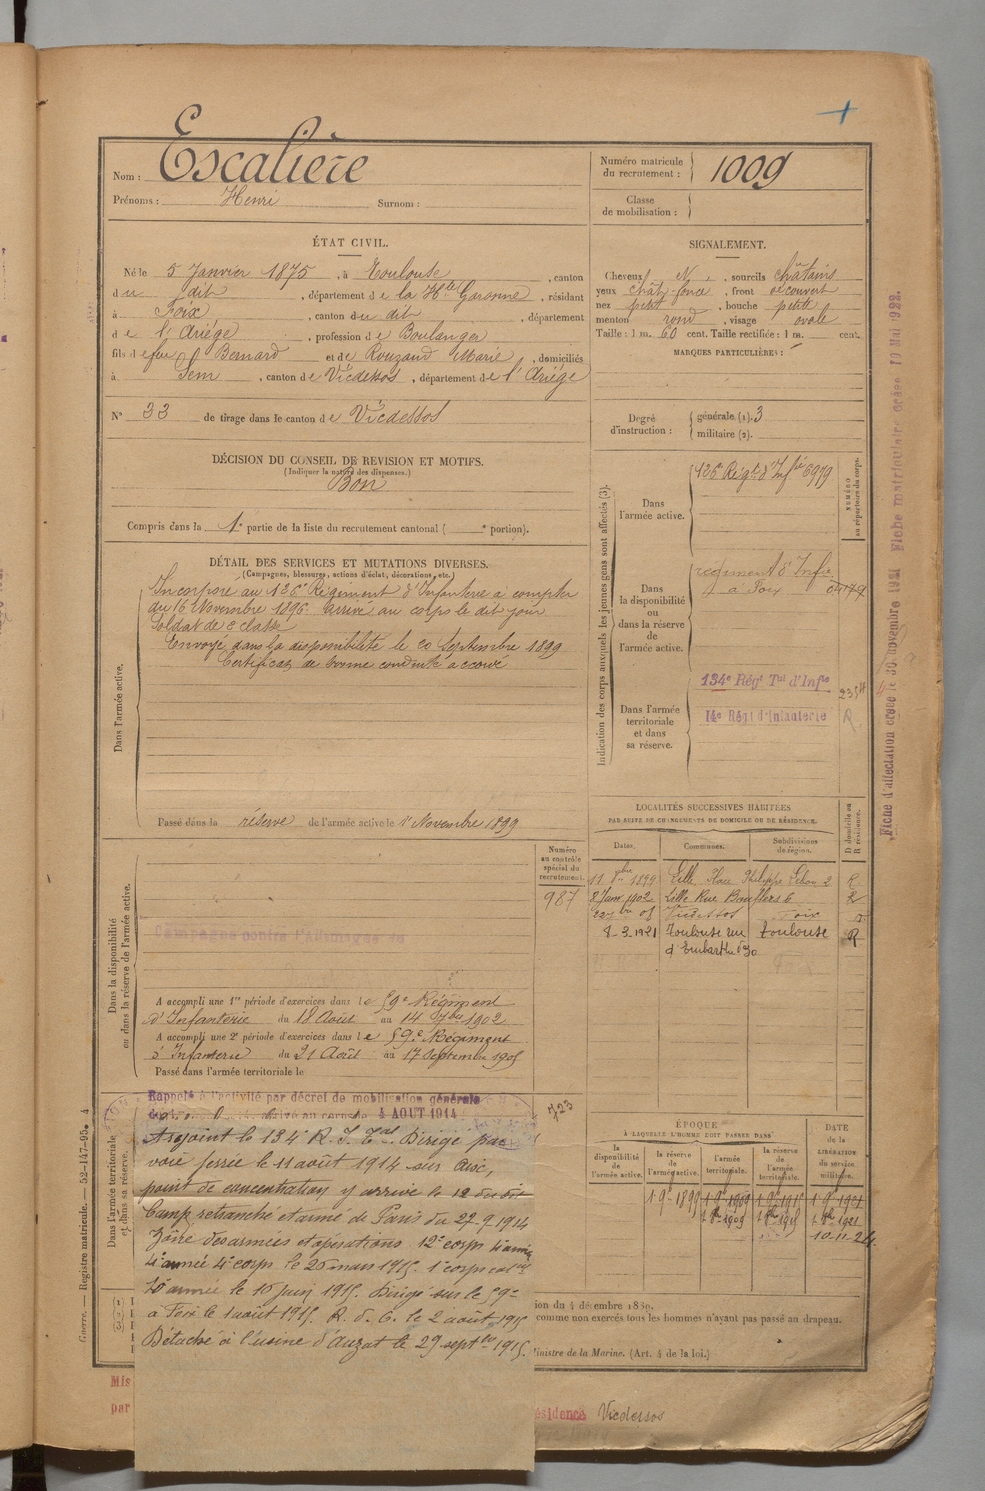 Nom : Escalière
Prénoms : Henri Surnom :
Numéro matricule du recrutement : 1009
Classe de mobilisation :
ÉTAT CIVIL.
Né le 5 Janvier 1875, à Toulouse, canton
du dit, département de la Hte Garonne, résidant
à Foix, canton du dit, département
de l'Ariège, profession de Boulanger
fils de feu Bernard et de Rouzaud Marie, domiciliés
à Sem, canton de Vicdessos, département de l'Ariège
N° 33 de tirage dans le canton de Vicdessos
SIGNALEMENT.
Cheveux N, sourcils châtains
yeux chât. foncé, front découvert
nez petit, bouche petite
menton rond, visage ovale
Taille : 1 m. 60 cent. Taille rectifiée : 1 m. cent.
MARQUES PARTICULIÈRES :
Degré d'instruction : générale (1). 3
militaire (2).
DÉCISION DU CONSEIL DE REVISION ET MOTIFS.
(Indiquer la nature des dispenses.)
Bon
Compris dans la 1e partie de la liste du recrutement cantonal ( e portion).
DÉTAIL DES SERVICES ET MUTATIONS DIVERSES.
(Campagnes, blessures, actions d'éclat, décorations, etc.)
Dans l'armée active.
Incorporé au 126e Régiment d'Infanterie à compter
du 16 Novembre 1896. arrivé au corps le dit jour
Soldat de 2e classe
Envoyé dans la disponibilité le 20 Septembre 1899
Certificat de bonne conduite accordé
Passé dans la réserve de l'armée active le 1er Novembre 1899
Indication des corps auxquels les jeunes gens sont affectés (3).
NUMÉRO au répertoire du corps.
Dans l'armée active.
126e Régt d'Infie 6979
Dans la disponibilité ou dans la réserve de l'armée active.
régiment d'Infie
à Foix
Dans l'armée territoriale et dans sa réserve.
134e Régt Tal d'Infie
14e Régt d'Infanterie
R.
Fiche d'affectation créée le 30 novembre 1921 Fiche matriculaire créée 10 Mai 1922.
LOCALITÉS SUCCESSIVES HABITÉES
PAR SUITE DE CHANGEMENTS DE DOMICILE OU DE RÉSIDENCE.
Dates. Communes. Subdivisions de région. D domicile ou R résidence.
11 8bre 1899 Lille Place Philippe Lebon 2 R
8 Janv 1902 Lille Rue Boufflers 6 R
Vicdessos Foix
8.3.1921 Toulouse rue Toulouse R
d'Embarthe
Dans la disponibilité ou dans la réserve de l'armée active.
Numéro au contrôle spécial du recrutement.
987
Campagne contre l'Allemagne du
A accompli une 1re période d'exercices dans le 59e Régiment
d'Infanterie du 18 Août au 14 7bre 1902
A accompli une 2e période d'exercices dans le 59e Régiment
d'Infanterie du 21 Août au 17 Septembre 1905
Passé dans l'armée territoriale le
Dans l'armée territoriale et dans sa réserve.
Rappelé à l'activité par décret de mobilisation générale
arrivé au corps le 4 AOUT 1914
Rejoint le 134e R. I. Tal. Dirigé par
voie ferrée le 11 août 1914 sur
point de concentration y arrivé le 12 du dit
Camp retranché et armé de Paris du 27-9-1914
Zône des armées et opérations 12e corps 4e armée
4e armée 4e corps le 20 mars 1915. 1e corps
10e armée le 10 juin 1915. Dirigé sur le 59e
à Foix le 1 août 1915. R. d. C. le 2 août 1915
Détaché à l'usine d'Auzat le 29 septbre 1915.
723
ÉPOQUE
À LAQUELLE L'HOMME DOIT PASSER DANS
DATE de la LIBÉRATION du service militaire.
la disponibilité de l'armée active. la réserve de l'armée active. l'armée territoriale. la réserve de l'armée territoriale.
1 9e 1899 1 9e 1909 1 9e 1915 1 9e 1921
1 8e 1909 1 8e 1915 1 8e 1921
10-11-24
ion du 4 décembre 1889.
comme non exercés tous les hommes n'ayant pas passé au drapeau.
Ministre de la Marine. (Art. 4 de la loi.)
Guerre. — Registre matricule. — 52-147-95. 4
Mis
par
ésidence Vicdessos